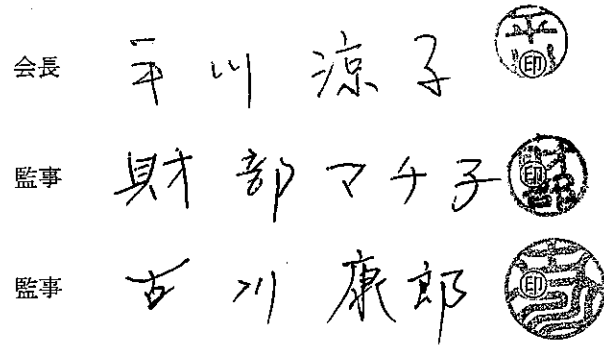 会長 平川涼子 ㊞
監事 財部マチ子 ㊞
監事 古川康郎 ㊞